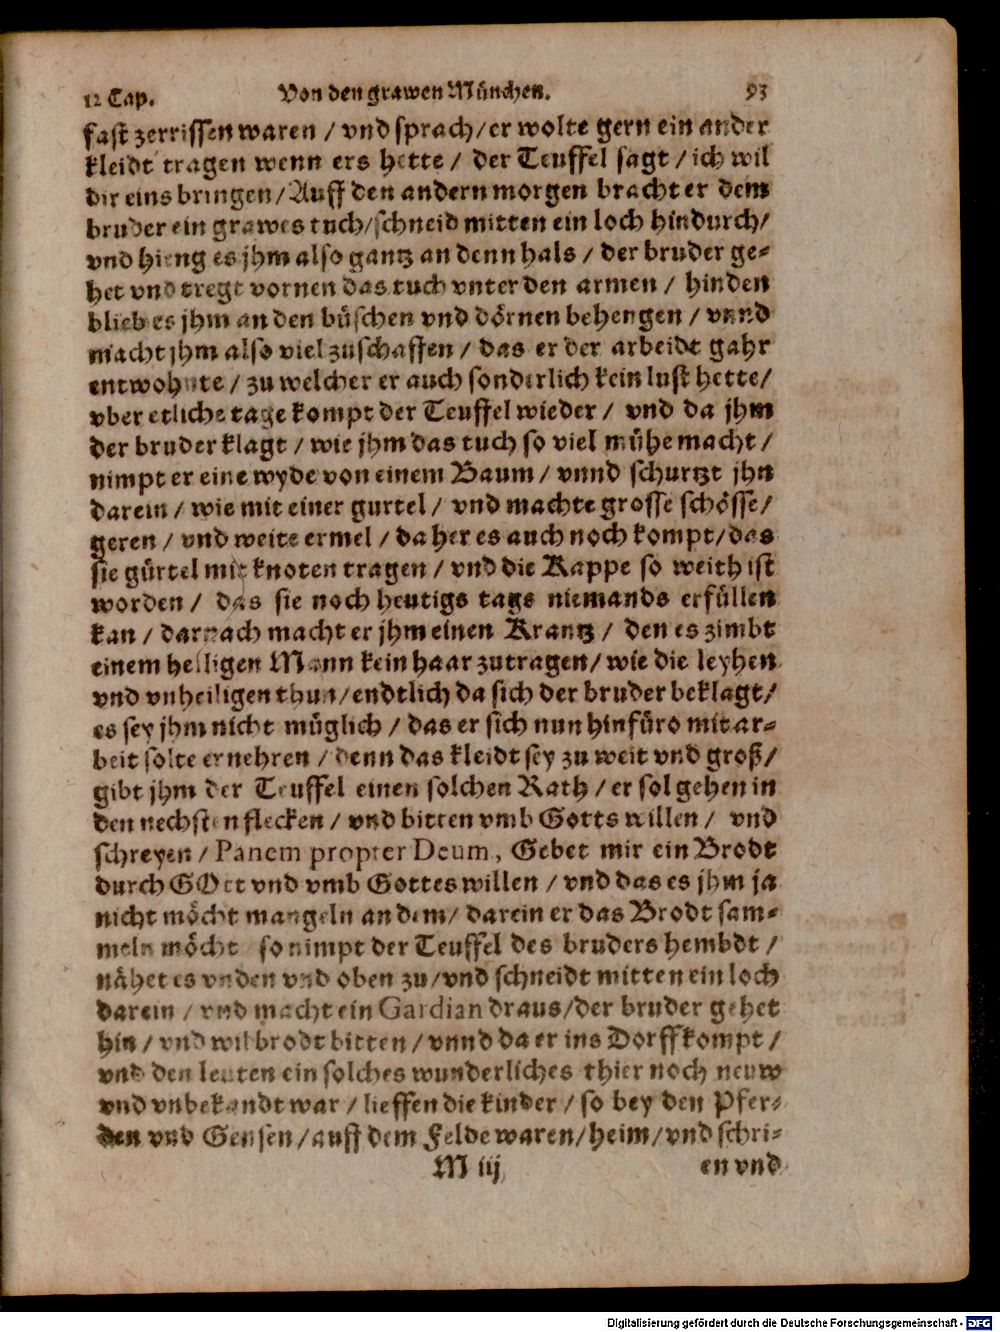 12 Cap. Von den grawen München. 93
fast zerrissen waren / vnd sprach / er wolte gern ein ander
kleidt tragen wenn ers hette / der Teuffel sagt / ich wil
dir eins bringen / Auff den andern morgen bracht er dem
bruder ein grawes tuch / schneid mitten ein loch hindurch /
vnd hieng es jhm also gantz an denn hals / der bruder ge-
het vnd tregt vornen das tuch vnter den armen / hinden
blieb es jhm an den büschen vnd dörnen behengen / vnnd
macht jhm also viel zuschaffen / das er der arbeidt gahr
entwohnte / zu welcher er auch sonderlich kein lust hette /
vber etliche tage kompt der Teuffel wieder / vnd da jhm
der bruder klagt / wie jhm das tuch so viel mühe macht /
nimpt er eine wyde von einem Baum / vnnd schurtzt jhn
darein / wie mit einer gurtel / vnd machte grosse schösse /
geren / vnd weite ermel / daher es auch noch kompt / das
sie gürtel mit knoten tragen / vnd die Kappe so weith ist
worden / das sie noch heutigs tags niemands erfüllen
kan / darnach macht er jhm einen Krantz / den es zimbt
einem heiligen Mann kein haar zutragen / wie die leyhen
vnd vnheiligen thun / endtlich da sich der bruder beklagt /
es sey jhm nicht müglich / das er sich nun hinfüro mit ar-
beit solte ernehren / denn das kleidt sey zu weit vnd groß /
gibt jhm der Teuffel einen solchen Rath / er sol gehen in
den nechsten flecken / vnd bitten vmb Gotts willen / vnd
schreyen / Panem propter Deum, Gebet mir ein Brodt
durch GOtt vnd vmb Gottes willen / vnd das es jhm ja
nicht möcht mangeln an dem / darein er das Brodt sam-
meln möcht so nimpt der Teuffel des bruders hembdt /
nähet es vnden vnd oben zu / vnd schneidt mitten ein loch
darein / vnd macht ein Gardian draus / der bruder gehet
hin / vnd wil brodt bitten / vnnd da er ins Dorff kompt /
vnd den leuten ein solches wunderliches thier noch neuw
vnd vnbekandt war / lieffen die kinder / so bey den Pfer-
den vnd Gensen / auff dem Felde waren / heim / vnd schri-
M iij en vnd
Digitalisierung gefördert durch die Deutsche Forschungsgemeinschaft - DFG